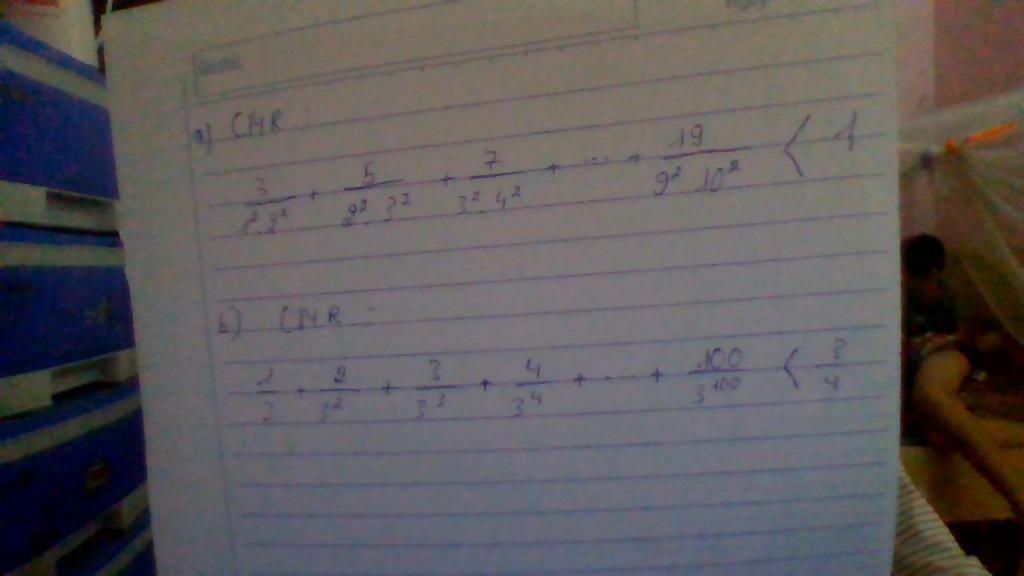 a) CMR
3/1².2² + 5/2².3² + 7/3².4² + ... + 19/9² 10² < 1
b) CMR :
1/3 + 2/3² + 3/3³ + 4/3⁴ + .... + 100/3¹⁰⁰ < 3/4